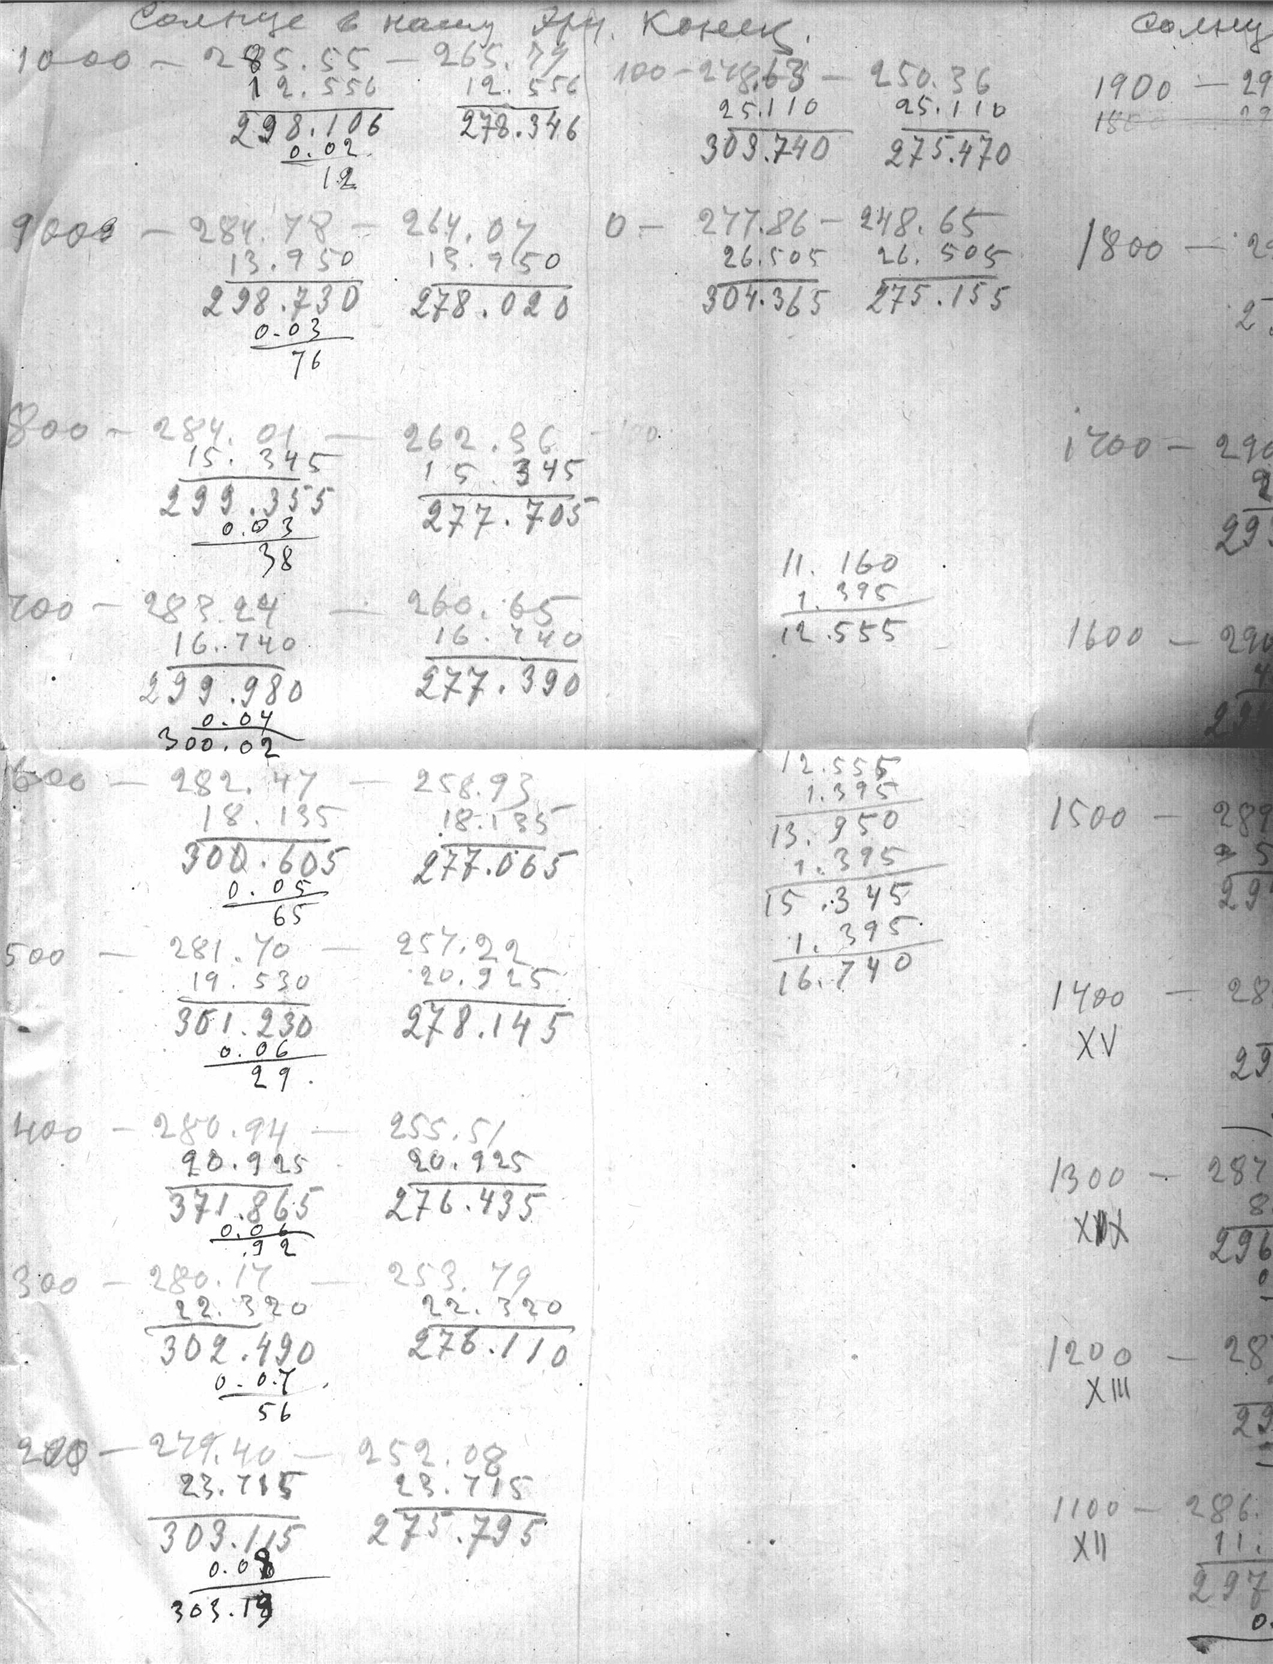 Солнце в нашу Эру. Конец.
1000 – 285.55 – 265.79
12.556 12.556
298.106 278.346
0.02
12
9000 – 284.78 – 264.07
13.950 13.950
298.730 278.020
0.03
76
800 – 284.01 – 262.36 – 100
15.345 15.345
299.355 277.705
0.03
38
700 – 283.24 – 260.65
16.740 16.740
299.980 277.390
0.04
300.02
600 – 282.47 – 258.93
18.135 18.135
300.605 277.065
0.05
65
500 – 281.70 – 257.22
19.530 20.925
301.230 278.145
0.06
29.
400 – 280.94 – 255.51
20.925 20.925
371.865 276.435
0.06
.92
300 – 280.17 – 253.79
22.320 22.320
302.490 276.110
0.07
56
200 – 279.40 – 252.08
23.715 23.715
303.115 275.795
0.08
303.19
100 – 278.63 – 250.36
25.110 25.110
303.740 275.470
0 – 277.86 – 248.65
26.505 26.505
304.365 275.155
11.160
1.395
12.555
12.555
1.395
13.950
1.395
15.345
1.395
16.740
Солнц
1900 – 29
1800 – 29
1700 – 290
2
299
1600 – 290
4
1500 – 289
5
29
1400 – 28
XV
29
1300 – 287
8
296
0
1200 – 28
XIII
29
1100 – 286.
XII 11.
297
0.